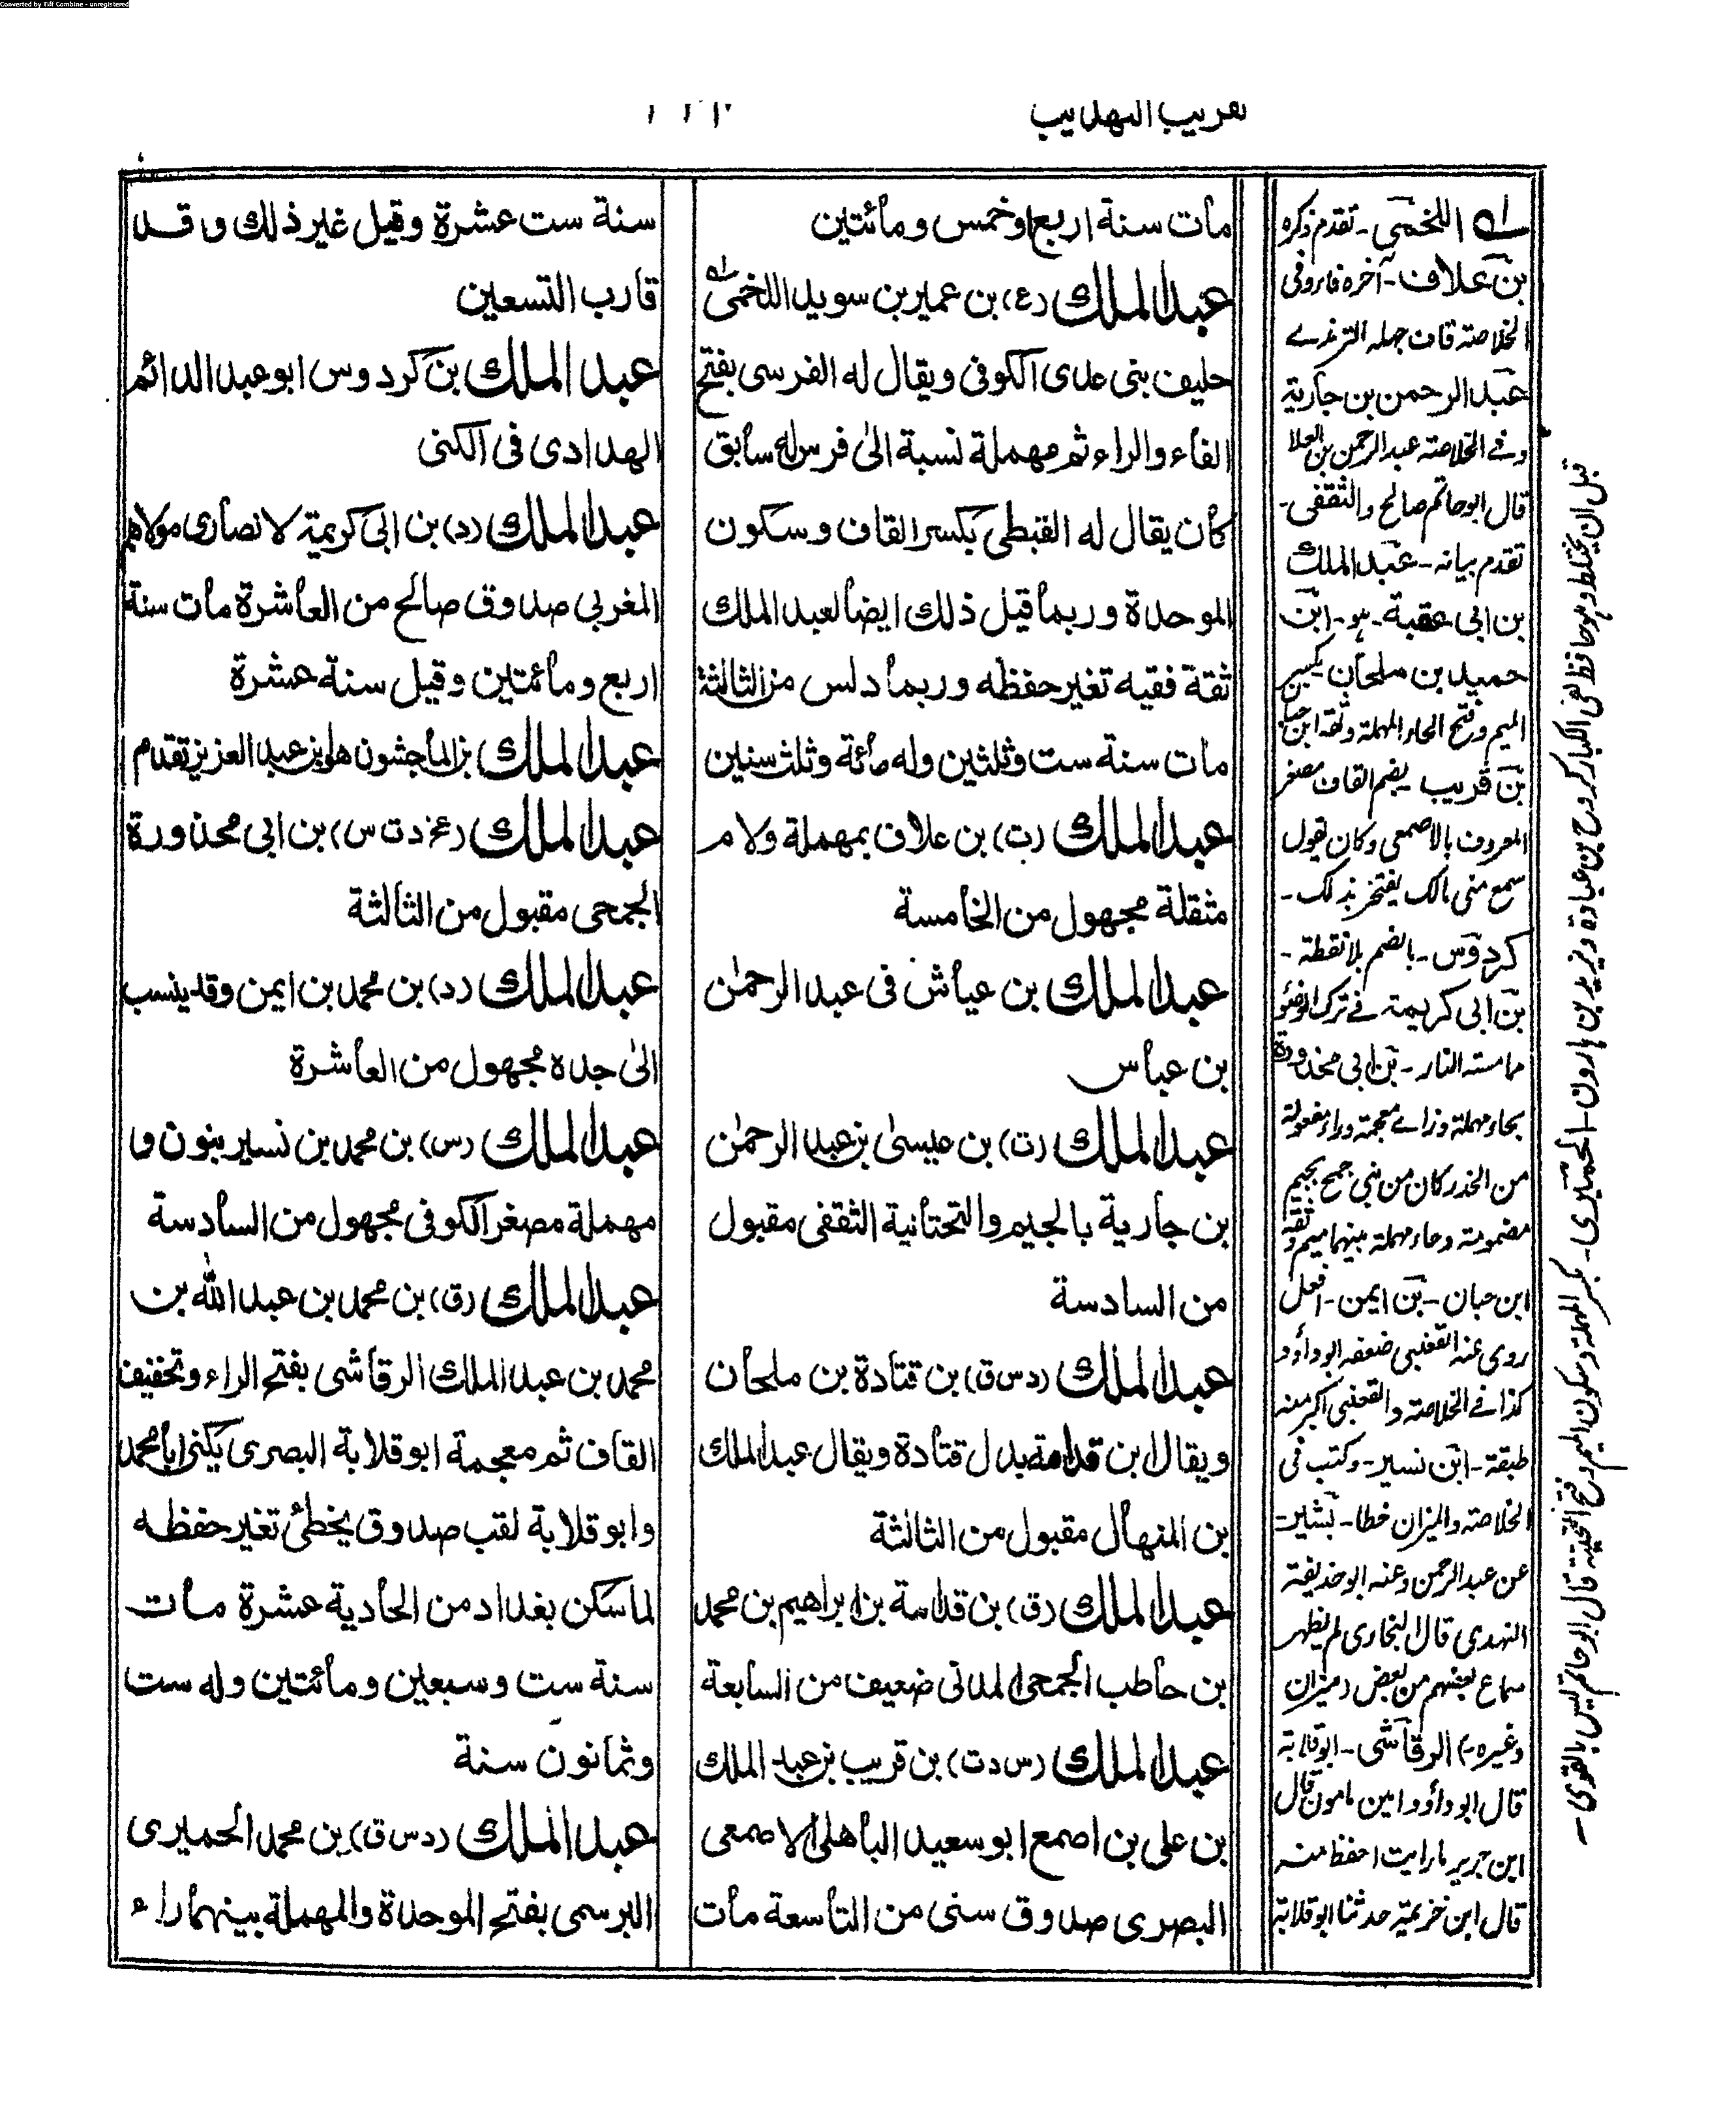 Converted by Tiff Combine - unregistered
تقريب التهذيب
مات سنة اربع او خمس ومائتين
عبد الملك (ع) بن عمير بن سويد اللخمى له
حليف بنى عدى الكوفى ويقال له الفرسى بفتح
الفاء والراء ثم مهملة نسبة الى فرس له سابق
كان يقال له القبطى بكسر القاف وسكون
الموحدة وربما قيل ذلك ايضا لعبد الملك
ثقة فقيه تغير حفظه وربما دلس من الثالثة
مات سنة ست وثلثين وله مائة وثلث سنين
عبد الملك (ت) بن علاق بمهملة ولام
مثقلة مجهول من الخامسة
عبد الملك بن عياش فى عبد الرحمٰن
بن عباس
عبد الملك (ت) بن عيسىٰ بن عبد الرحمٰن
بن جارية بالجيم والتحتانية الثقفى مقبول
من السادسة
عبد الملك (د س ق) بن قتادة بن ملحان
ويقال ابن قدامة بدل قتادة ويقال عبد الملك
بن المنهال مقبول من الثالثة
عبد الملك (ق) بن قدامة بن ابراهيم بن محمد
بن حاطب الجمحى المدنى ضعيف من السابعة
عبد الملك (س د ت) بن قريب بن عبد الملك
بن على بن اصمع ابو سعيد الباهلى الاصمعى
البصرى صدوق سنى من التاسعة مات
سنة ست عشرة وقيل غير ذلك وقد
قارب التسعين
عبد الملك بن كردوس ابو عبد الدائم
الهدادى فى الكنى
عبد الملك (د) بن ابى كريمة لانصارى مولاهم
المغربى صدوق صالح من العاشرة مات سنة
اربع ومائتين وقيل سنة عشرة
عبد الملك بن الماجشون هو ابن عبد العزيز تقدم
عبد الملك (عخ د ت س) بن ابى محذورة
الجمحى مقبول من الثالثة
عبد الملك (د) بن محمد بن ايمن وقد ينسب
الىٰ جده مجهول من العاشرة
عبد الملك (س) بن محمد بن نسير بنون و
مهملة مصغر الكوفى مجهول من السادسة
عبد الملك (ق) بن محمد بن عبد الله بن
محمد بن عبد الملك الرقاشى بفتح الراء وتخفيف
القاف ثم معجمة ابو قلابة البصرى يكنى ابا محمد
وابو قلابة لقب صدوق يخطئ تغير حفظه
لما سكن بغداد من الحادية عشرة مات
سنة ست وسبعين ومائتين وله ست
وثمانون سنة
عبد الملك (د س ق) بن محمد الحميرى
البرسمى بفتح الموحدة والمهملة بينهما راء
له اللخمى - تقدم ذكره
بن علاق - آخره قاف وفى
الخلاصة قاف جهله الترمذے
عبد الرحمن بن جارية
وفے الخلاصة عبد الرحمن بن العلا
قال ابو حاتم صالح والثقفى -
تقدم بيانه - عبد الملك
بن ابى عقبة - هو - ابن
حميد بن ملحان - بكسر
الميم وفتح الحاء المهملة وثقه ابن حبان
بن قريب بضم القاف مصغر
المعروف بالاصمعى وكان يقول
سمع منى مالك يفتخر بذلك -
كردوس - بالضم بلا نقطة -
بن ابى كريمة فے ترك الوضوء
مما مسته النار - بن ابى محذورة
بحاء مهملة وزاے معجمة وراء مفعولة
من الحذر كان من بنى جمح بجيم
مضمومة وحاء مهملة بينهما ميم وثقه
ابن حبان - بن ايمن - افعل
روى عنه القعنبى ضعفه ابو داؤد
كذا فے الخلاصة والقعنبى اكبر منه
طبقة - ابن نسير - وكتب فى
الخلاصة والميزان خطا - بشير -
عن عبد الرحمن وعنه ابو حذيفة
النهدى قال البخارى لم يظهر
سماع بعضهم من بعض (ميزان
وغيره) الرقاشى - ابو قلابة
قال ابو داؤد امين مامون قال
ابن جرير ما رايت احفظ منه
قال ابن خزيمة حدثنا ابو قلابة
قبل ان يختلط وهو حافظ لقى الكبار كروح بن عبادة ويزيد بن هارون - الحميرى - بكسر المهملة وسكون الميم وفتح التحتية قال ابو حاتم ليس بالقوى -